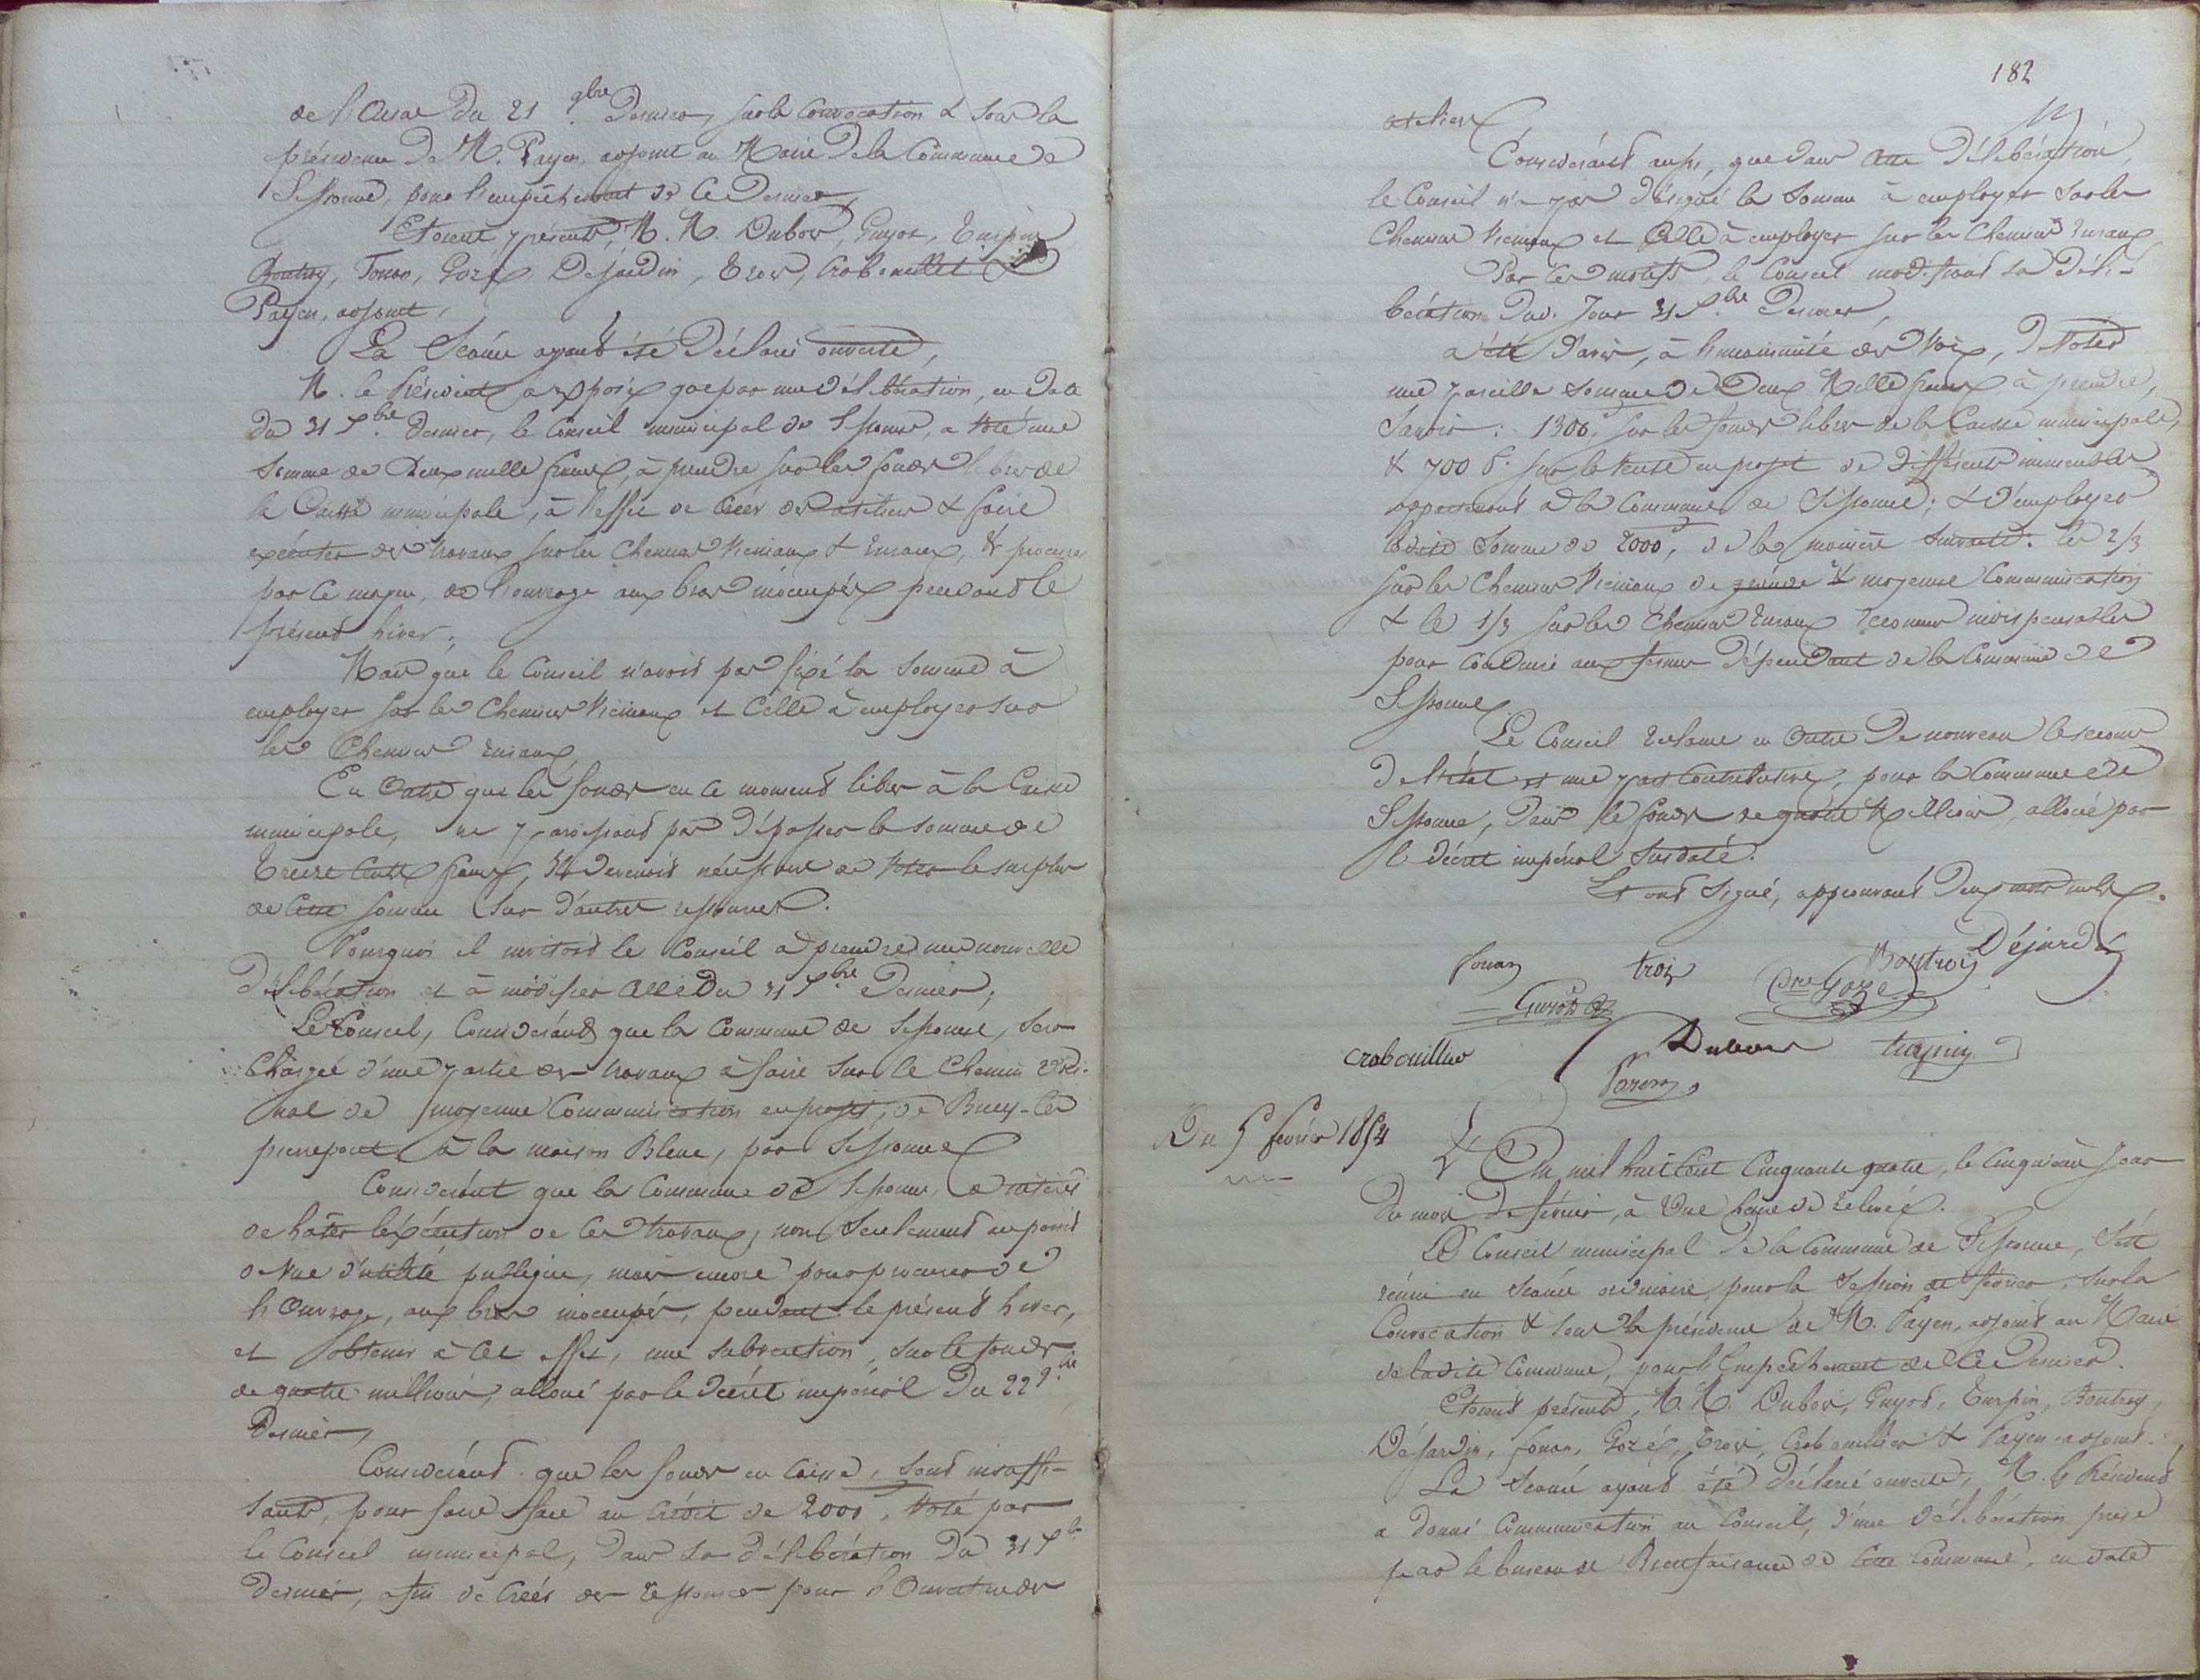 de l'Aisne du 21 9bre dernier, sur la convocation & sous la
présidence de M. Payen, adjoint au Maire de la Commune de
Sissonne, pour l'empêchement de ce dernier,
Etoient présents, M. M. Dubois, Guyot, Turpin,
Boutroy, Fouan, Gozé, Dejardin, Trois, Crabouillet &
Payen, adjoint,
La Séance ayant été déclarée ouverte,
M. le Président a exposé que par une délibération, en date
du 31 Xbre dernier, le Conseil municipal de Sissonne, a voté une
somme de deux mille francs, à prendre sur les fonds libres de
la Caisse municipale, à l'effet de créer des ateliers & faire
exécuter des travaux sur les chemins vicinaux & ruraux, & procurer
par ce moyen, de l'ouvrage aux bras inoccupés pendant le
présent hiver,
Mais que le Conseil n'avoit pas fixé la somme à
employer sur les chemins vicinaux et celle à employer sur
les chemins ruraux,
En outre que les fonds en ce moment libres à la Caisse
municipale, ne paroissant pas dépasser la somme de
treize cents francs, il devenoit nécessaire de voter le surplus
de cette somme sur d'autres ressources.
Pourquoi il invitoit le Conseil à prendre une nouvelle
délibération et à modifier celle du 31 Xbre dernier,
Le Conseil, Considérant que la Commune de Sissonne, sera
chargée d'une partie des travaux à faire sur le chemin vici-
nal de moyenne communication en projet, de Bucy-les
pierrepont à la maison Bleue, par Sissonne
Considérant que la Commune de Sissonne, a intérêt
de hâter l'exécution de ces travaux, non seulement au point
de vue d'utilité publique, mais encore pour procurer de
l'ouvrage, aux bras inoccupés, pendant le présent hiver,
et obtenir à cet effet, une subvention, sur le fonds
de quatre millions, alloué par le décret impérial du 22 9bre
dernier,
Considérant que les fonds en caisse, sont insuffi-
sants, pour faire face au crédit de 2000f, voté par
le Conseil municipal, dans sa délibération du 31 Xbre
dernier, afin de créer des ressources pour l'ouverture des
182
ateliers,
Considérant aussi, que dans cette délibération,
le Conseil n'a pas désigné la somme à employer sur les
chemins vicinaux et celle à employer sur les chemins ruraux,
Par ces motifs, le Conseil modifiant sa déli-
bération dud. jour 31 Xbre dernier,
a été d'avis, à l'unanimité des voix, de voter
une pareille somme de deux mille francs à prendre,
savoir : 1300f, sur les fonds libres de la Caisse municipale,
& 700 f. sur la vente en projet de différents immeubles
appartenant à la Commune de Sissonne; & d'employer
ladite somme de 2000f, de la manière suivante : les 2/3
sur les chemins vicinaux de grande & moyenne communication
& le 1/3 sur les chemins ruraux reconnus indispensables
pour conduire aux fermes dépendant de la Commune de
Sissonne.
Le Conseil réclame en outre de nouveau le secours
de l'état et une part contributive, pour la Commune de
Sissonne, dans le fonds de quatre millions, alloué par
le décret impérial susdaté.
Et ont signé, approuvant deux mots nuls.
fouan trois Boutroy Déjardin
Guyot Gozé
crabouillier Dubois turpin
Payen
Du 5 février 1854
L'An mil huit Cent Cinquante quatre, le Cinquième jour
du mois de février, à Une heure de relevée.
Le Conseil municipal de la Commune de Sissonne, s'est
réuni en séance ordinaire, pour la session de février, sur la
Convocation & sous la présidence de M. Payen, adjoint au Maire
de ladite Commune, pour l'Empêchement de ce dernier.
Etoient présents, M. M. Dubois, Guyot, Turpin, Boutroy,
Déjardin, fouan, Gozé, Trois, Crabouillier & Payen adjoint.
La Séance ayant été déclarée ouverte, M. le Président
a donné communication au Conseil, d'une délibération prise
par le bureau de Bienfaisance de cette Commune, en date